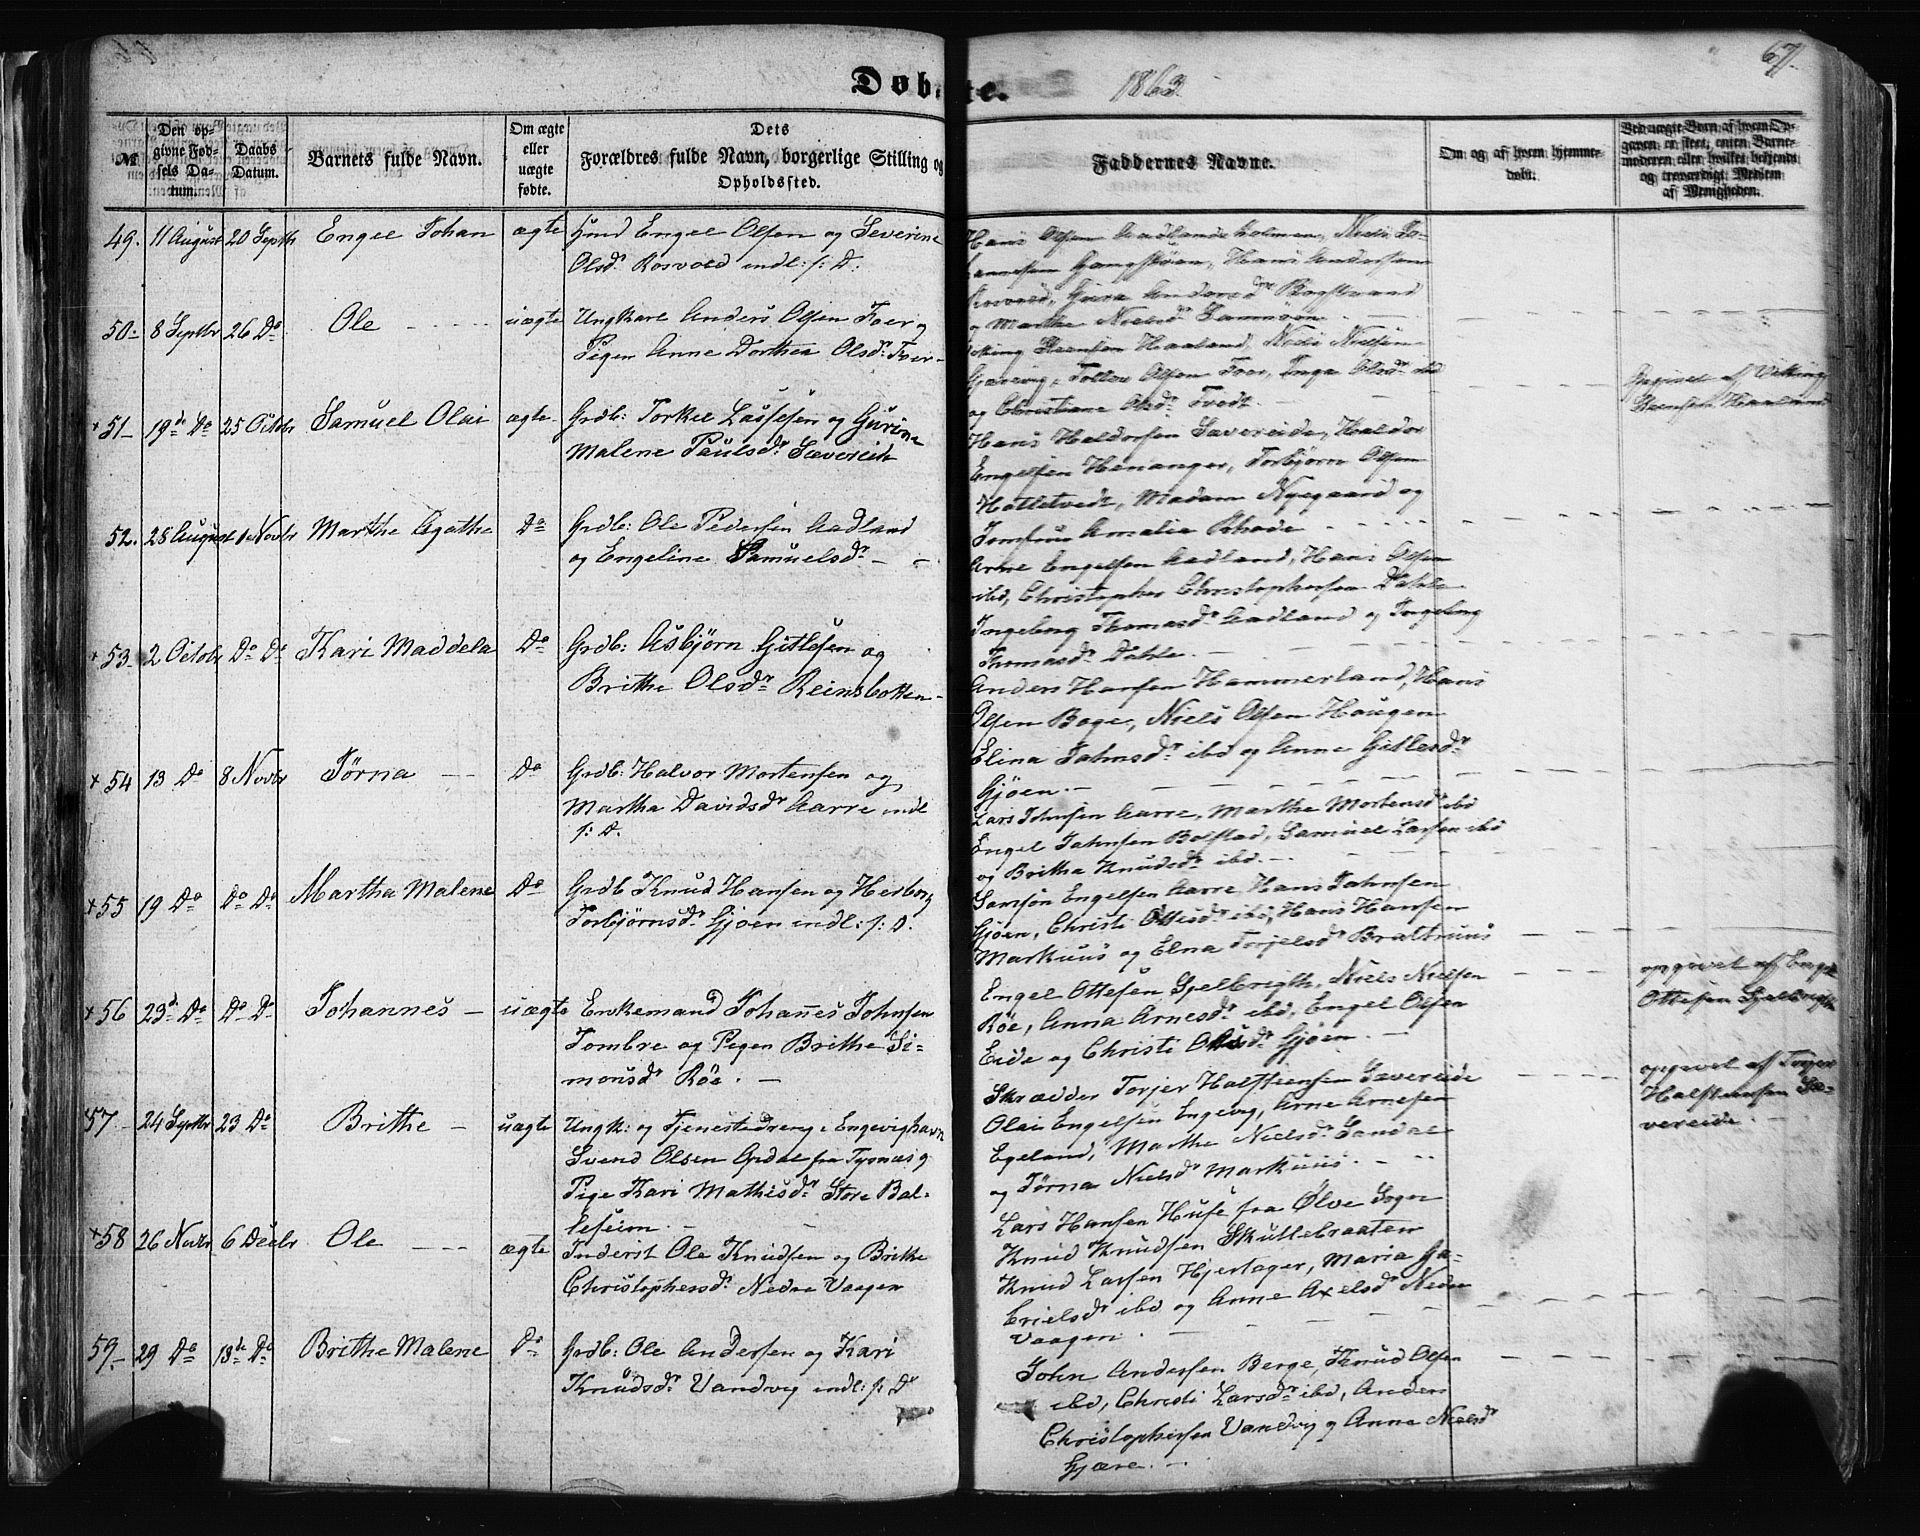 67.
Dob. te. 1863.
№
Den opgivne Fødsels Datum.
Daabs Datum.
Barnets fulde Navn.
Om ægte eller uægte fødte.
Dets Forældres fulde Navn, borgerlige Stilling og Opholdssted.
Faddernes Navne.
Om og af hvem hjemmedøbt.
Ved uægte Børn af hvem Opgaven er skeet, enten Barnemoderen eller hvilket bekjendt og troværdigt Medlem af Menigheden.
49. 11 August 20 Septb Engel Johan ægte Hmd Engel Olsen og Severine
Olsdr. Rosvold indl: f: D:
Hans Olsen Aadlandsholmen, Niels Jo-
hannesen Gangstøen, Hans Andersen
Rosvold, Guro Andersdr Bogstrand
og Marthe Nielsdr
50– 8 Septbr 26 Do Ole – uægte Ungkarl Anders Olsen Tver og
Pigen Anne Dorthea Olsdr: Tver–
Viking Steensen Haaland, Niels Nielsen
Gjærevig, Tollev Olsen Tver, Inga Olsdr ibd
og Christiane Olsdr Tvedt.
Opgivet af Viking
Steensen Haaland
+ 51– 19de Do 25 Octobr Samuel Olai ægte Grdb: Torkel Lassesen og Gurine
Malene Paulsdr Sævereide
Hans Haldorsen Sævereide, Haldor
Engelsen Henanger, Torbjørn Olsen
Hatletvedt, Madam Nygaard og
Jomfru Amalia Rhode
52. 28 August 1 Novbr Marthe Agathe Do Grdb: Ole Pedersen Aadland
og Engeline Samuelsdr – –
Arne Engelsen Aadland, Hans Olsen
ibd, Christopher Christophersen Dahle
Ingeborg Thomasdr Aadland og Ingeborg
Thomasdr Dahle.
+ 53– 2 Octobr Do Do Kari Maddela Do Grdb: Asbjørn Gitlesen og
Brithe Olsdr Reinsbotten –
Anders Hansen Hammerland, Hans
Olsen Boge, Niels Olsen Haugen
Elina Jahnsdr ibd og Anne Gitlesdr
Gjøen. –
+ 54 13 Do 8 Novbr Jørna – – Do Grdb: Halvor Mortensen og
Martha Davidsdr Aarre indl
f: D.
Lars Johnsen Aarre, Marthe Mortensdr ibd
Engel Jahnsen Bolstad, Samuel Larsen ibd
og Britha Knudsdr ibd. –
+ 55 19 Do Do Do Martha Malene Do Grdb Knud Hansen og Herborg
Torbjørnsdr. Gjøen indl: f: D.
Samson Engelsen Aarre, Hans Jahnsen
Gjøen, Christi Ottesdr ibd, Hans Hansen
Markuus og Elna Torjelsdr Brattruus
+ 56 23de Do Do Do Johannes – uægte Enkemand Johannes Johnsen
Tombre og Pigen Brithe Si-
monsdr Røe. –
Engel Ottesen Gjelbrigth, Niels Nielsen
Røe, Anna Arnesdr ibd, Engel Olsen
Eide og Christi Olsdr Gjøen. –
opgivet af Engel
Ottesen Gjelbrigth
57– 24 Septbr 23 Do Brithe – uægte Ungk: og Tjenestedreng i Engevighavn
Svend Olsen Opdal fra Tysnæs og
Pige Kari Mathisdr Store Bal-
leseim –
Skrædder Torjer Halsteensen Sævereide
Olai Engelsen Engevig, Arne Arnesen
Egeland, Marthe Nielsdr Sandal
og Jørna Nielsdr Markuus. –
opgivet af Torjer
Halsteensen Sæ-
vereide. –
+ 58 26 Novbr 6 Decbr Ole – – ægte Inderst Ole Knudsen og Brithe
Christophersdr Nedre Vaagen
Lars Hansen Huse fra Ølve Sogn
Knud Knudsen Skuttebraaten
Knud Larsen Hjertager, Maria Ga-
brielsdr ibd og Anne Axelsdr Nedre
Vaagen. –
59.– 29 Do 13de Do Brithe Malene Do Grdb: Ole Andersen og Kari
Knudsdr: Vandvig indl: f: D
John Andersen Berge, Knud Olsen
ibd, Christi Larsdr ibd, Anders
Christophersen Vandvig og Anne Nielsdr
Gjære. –